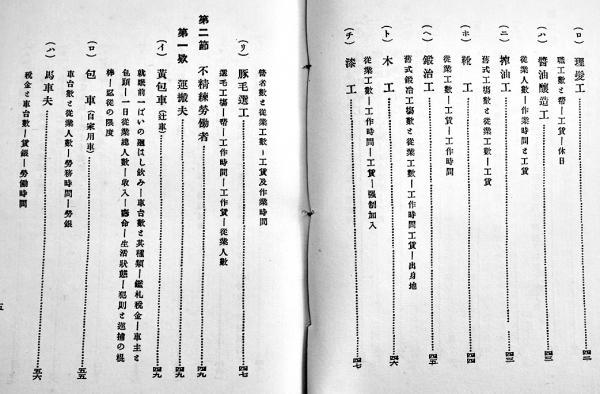 (ロ) 理髮工……四二
職工數と幣ー工賃ー休日
(ハ) 醬油釀造工……四三
從業人數ー作業時間と工賃
(ニ) 搾油工……四三
舊式工場數と從業工數ー工賃
(ホ) 靴工……四四
從業工數ー工賃ー工作時間
(ヘ) 鍛冶工……四五
舊式鍛冶工場數と從業工數ー工作時間工賃ー出身地
(ト) 木工……四六
從業工數ー工作時間ー工賃ー强制加入
(チ) 漆工……四七
營者數と從業工數ー工賃及作業時間
(リ) 豚毛選工……四七
選毛工場ー幣ー工作時間ー工作賃ー從業人數
第二節 不精練勞働者……四九
第一欵 運搬夫……四九
(イ) 黃包車(辻車)……四九
就眠前一ぱいの Leave 飮みー車台數と其種類ー鑑札稅金ー車主と
包頭ー一日從業總人數ー收入ー壽命ー生活狀態ー犯則と逮捕の棍
棒ー忍從の限度
(ロ) 包車(自家用車)……五五
車台數と從業人數ー勞務時間ー勞銀
(ハ) 馬車夫……五六
稅金と車台數ー賃銀ー勞働時間
五